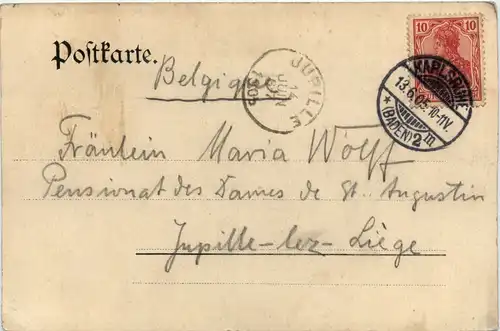 10 10
Postkarte.
Belgique
JUPILLE
14
JUIN
1905
KARLSRUHE
13.6.05.10-11V.
* (BADEN) 2 m
Fräulein Maria Wolff
Pensionat des Dames de St. Augustin
Jupille-lez-Liège